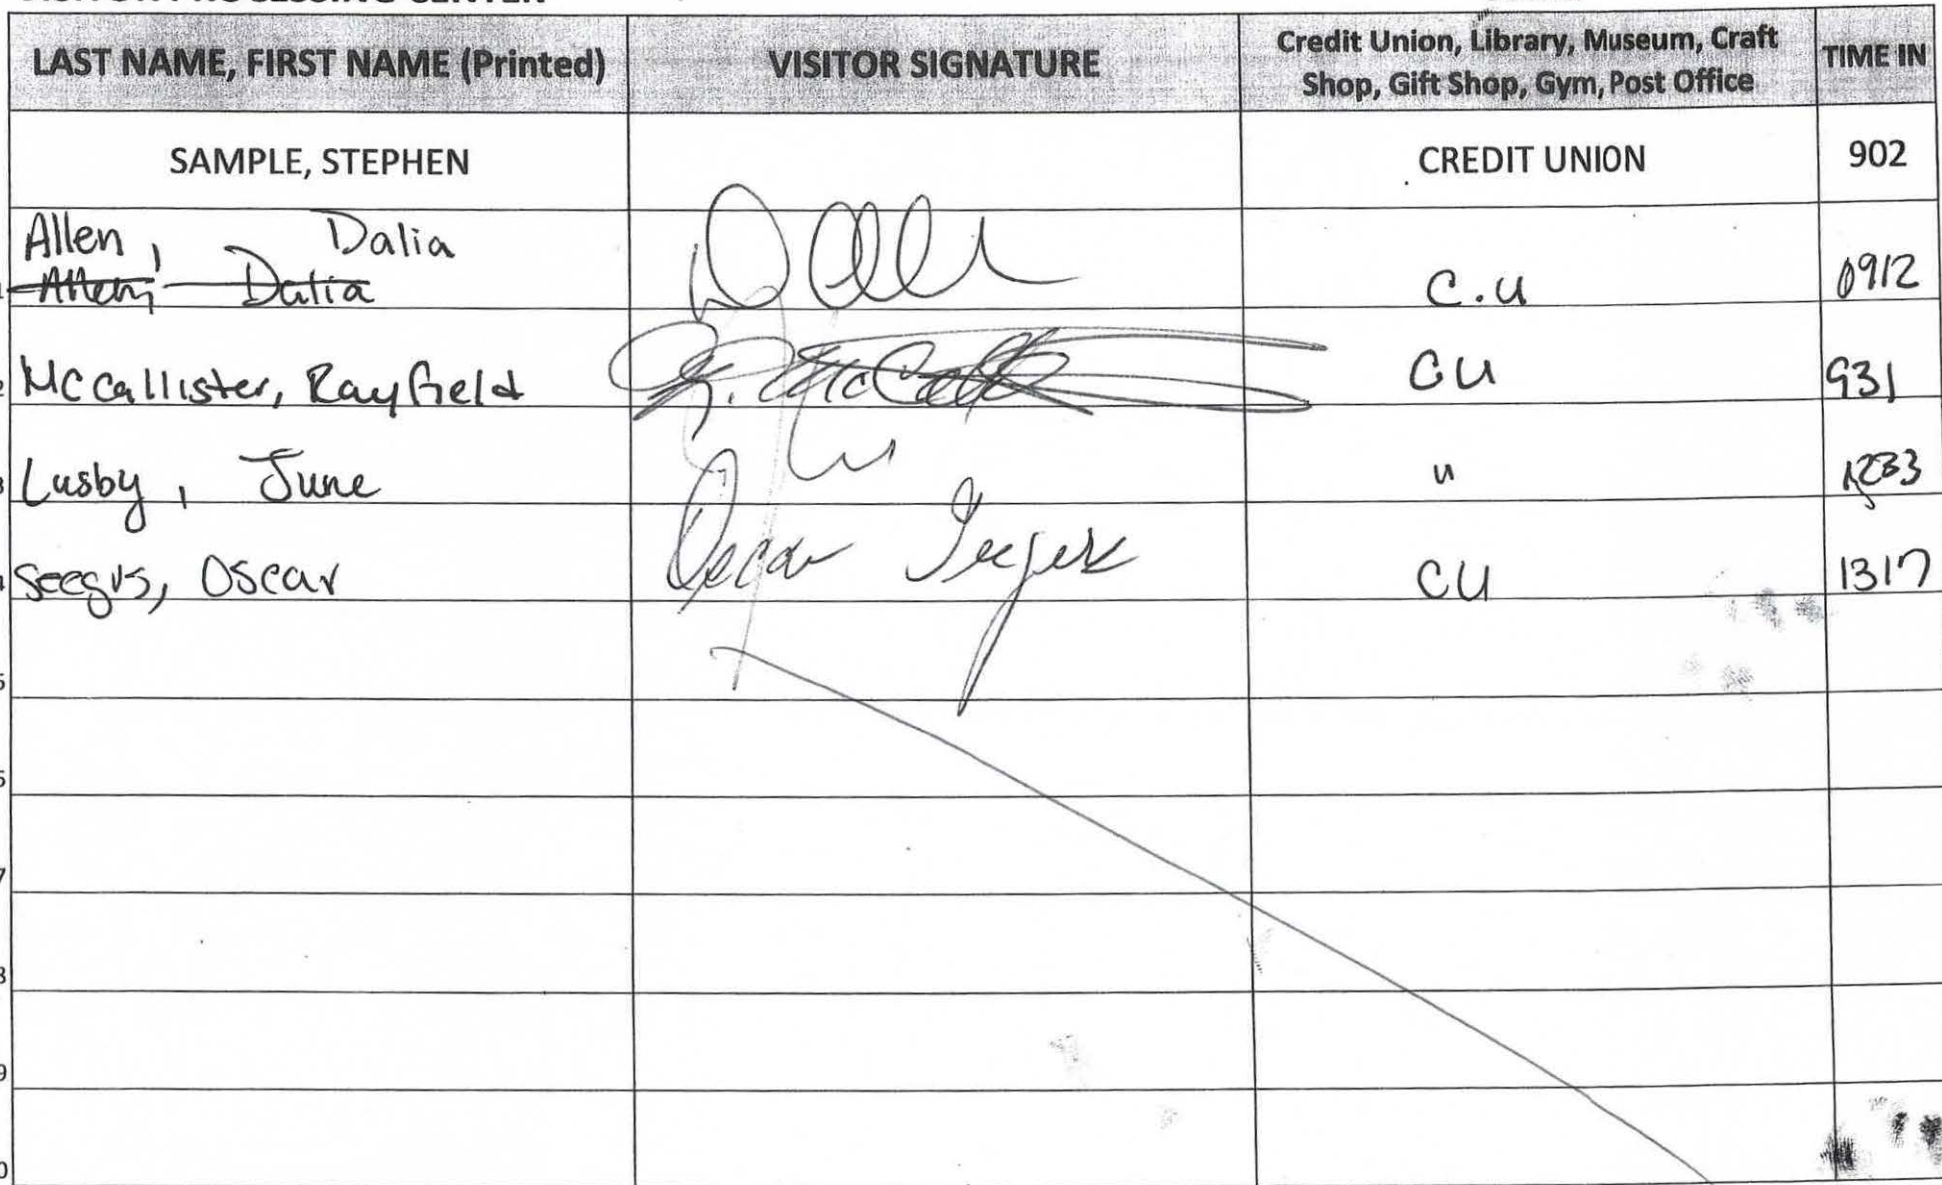 VISITOR PROCESSING CENTER
LAST NAME, FIRST NAME (Printed) VISITOR SIGNATURE Credit Union, Library, Museum, Craft Shop, Gift Shop, Gym, Post Office TIME IN
SAMPLE, STEPHEN CREDIT UNION 902
Allen, Dalia
1 Allen, Dalia D All C.U 0912
2 McCallister, Rayfield R. McCall CU 931
3 Lusby, June " 1233
4 Seegrs, Oscar Oscar Seegers CU 1317
5
6
7
8
9